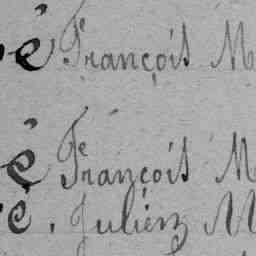 é François M
é François M
é. Julien M